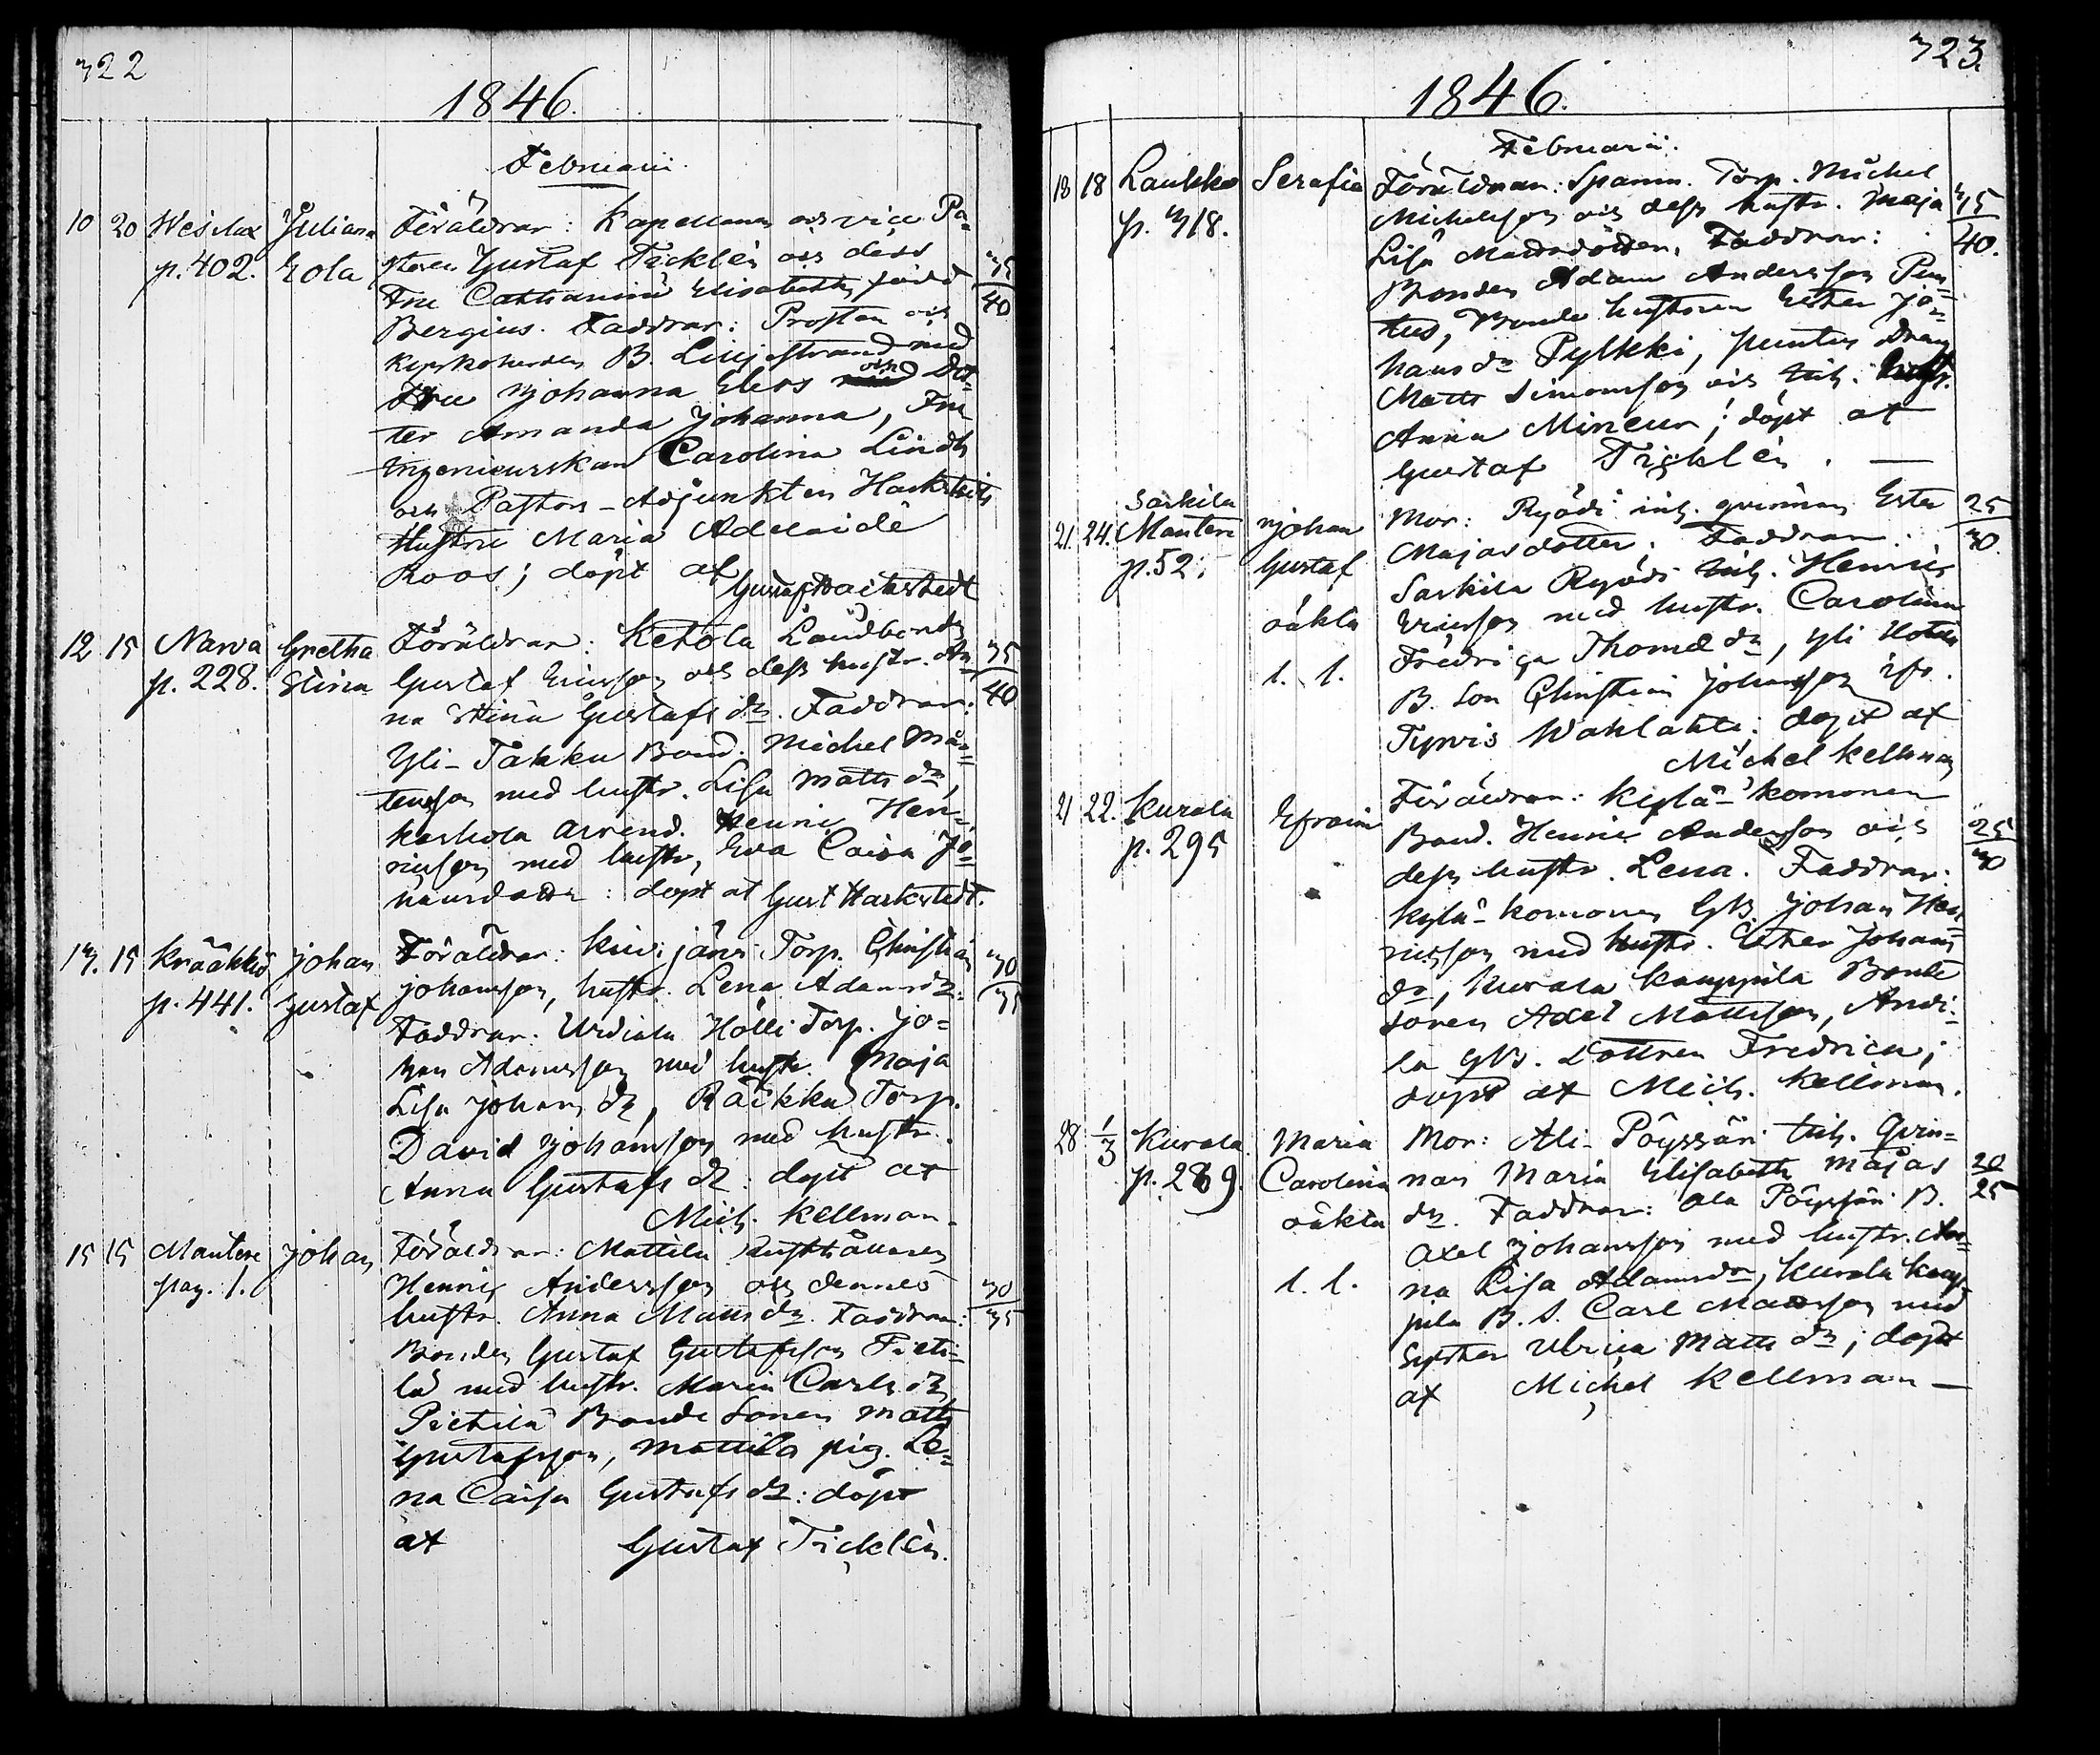 322
1846.
Februarii
10 20 Wesilax Juliana Föräldrar: Kapellanen och vice Pa-
p. 402. Eola storen Gustaf Ticklén och dess 35
Fru Catharina Elisabeth född 40
Bergius. Faddrar: Prosten och
Kyrkoherden B. Liljestrand med
Fru Johanna Elers och Dot-
ter Amanda Johanna, Fru
Ingenieurskan Carolina Lindh
och Pastors-Adjunkten
Hustru Maria Adelaide
Roos; döpt af
Gustaf Hackstedt
12 15 Narva Gretha Föräldrar: Ketola Landbonden 35
p. 228. Stina Gustaf Ericsson och dess hustr. An- 40
na Stina Gustafs dr. Faddrar:
Yli-Takku Bond. Michel Mår-
tensson med hustr. Lisa Matts dr,
Arrend. Henric Hen-
ricsson med hustr, Eva Caisa Jo-
hansdottr: döpt af Gust Hackstedt.
13. 15 Krääkkiö Johan Föräldrar: Kivijärvi Torp. Christian 30
p. 441. Gustaf Johansson, hustr. Lena Adamsdr. 35
Faddrar: Urdiala Hölli Torp. Jo-
han Adamsson med hustr. Maja
Lisa Johans dr, Räikku Torp.
David Johansson med hustr.
Anna Gustafs dr: döpt af
Mich. Kellman.
15 15 Mantere Johan Föräldrar: Mattila Rusthållaren
pag. 1. Henric Andersson och dennes 30
hustr. Anna Mans dr. Faddrar: 35
Bonden Gustaf Gustafsson Pieti-
lä med hustr. Maria Carls dr
Pietilä Bonde Sonen Matts
Gustafsson, Mattila pig. Le-
na Caisa Gustafs dr: döpt
af Gustaf Ticklén.
323.
1846.
Februarii.
18 18 Laukko Serafia Föräldrar: Spanm. Torp. Michel 35
p. 318. Michelsson och dess hustr. Maja 40.
Lisa Mattsdotter. Faddrar:
Bonden Adam Andersson Pun-
tus, Bonde hustrun Ester Jo-
hans dr Pylkki, Puntus Dräng
Matts Simonsson och Inh.
Anna Mineur; döpt af
Gustaf Ticklén. —
Sarkila
21. 24. Mantere Johan Mor: Ryödi inh. qvinnan Ester 25
p. 52. Gustaf Majasdotter. Faddrar: 30.
oäkta Sarkila Ryödi Inh. Henric
Ericsson med hustr. Carolina
l. l. Fredrica Thomæ dr, Yli
B. Son Christian Johansson ifr.
Tyrvis Wahlahti: döpt af
Michel Kellman
21 22. Kurala Efraim Föräldrar: Kylä-Komonen
p. 295 Bond. Henric Andersson och 25
dess hustr. Lena. Faddrar: 30
Kylä-Komonen Gb. Johan Hen-
ricsson med hustr. Ester Johans
dr, Kurala Kauppila Bonde
sonen Axel Mattsson, Anti-
la Gb. Dottren Fredrica;
döpt af Mich. Kellman.
28 1/3 Kurala Maria Mor: Ali-Pöyssäri Inh. Qvin-
p. 289. Carolina nan Maria Elisabeth Majas 20
oäkta dr. Faddrar: Ala Pöyssäri B. 25
Axel Johansson med hustr. An-
l. l. na Lisa Adamsdr, Kurala Kaup-
pila B. S. Carl Mattsson med
Syster Ulrica Matts dr; döpt
af Michel Kellman —